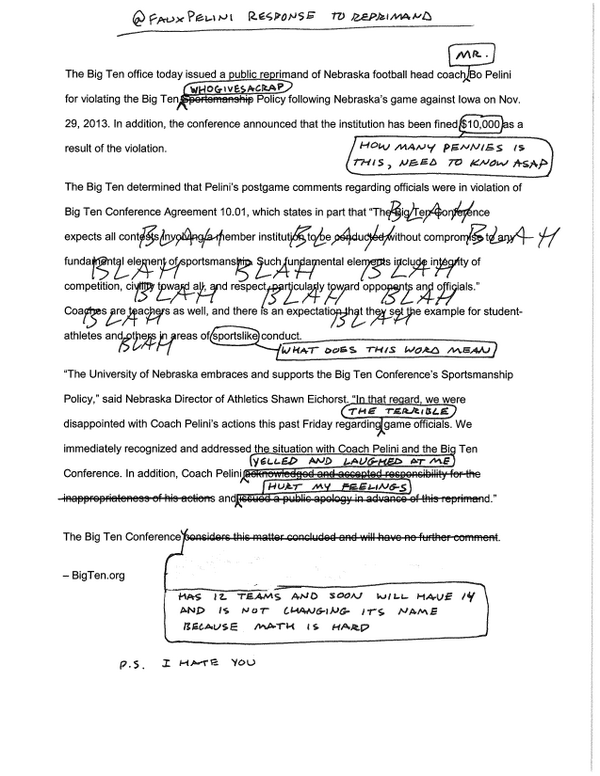 @FAUXPELINI RESPONSE TO REPRIMAND
MR.
The Big Ten office today issued a public reprimand of Nebraska football head coach Bo Pelini
WHOGIVESACRAP
for violating the Big Ten Sportsmanship Policy following Nebraska's game against Iowa on Nov.
29, 2013. In addition, the conference announced that the institution has been fined $10,000 as a
result of the violation.
HOW MANY PENNIES IS
THIS, NEED TO KNOW ASAP
The Big Ten determined that Pelini's postgame comments regarding officials were in violation of
Big Ten Conference Agreement 10.01, which states in part that "The Big Ten Conference
BLAH
expects all contests involving a member institution to be conducted without compromise to any
BLAH BLAH BLAH
fundamental element of sportsmanship. Such fundamental elements include integrity of
BLAH BLAH BLAH
competition, civility toward all, and respect, particularly toward opponents and officials."
BLAH BLAH BLAH
Coaches are teachers as well, and there is an expectation that they set the example for student-
BLAH BLAH
athletes and others in areas of sportslike conduct.
BLAH
WHAT DOES THIS WORD MEAN
"The University of Nebraska embraces and supports the Big Ten Conference's Sportsmanship
Policy," said Nebraska Director of Athletics Shawn Eichorst. "In that regard, we were
THE TERRIBLE
disappointed with Coach Pelini's actions this past Friday regarding game officials. We
immediately recognized and addressed the situation with Coach Pelini and the Big Ten
YELLED AND LAUGHED AT ME
Conference. In addition, Coach Pelini acknowledged and accepted responsibility for the
HURT MY FEELINGS
inappropriateness of his actions and issued a public apology in advance of this reprimand."
The Big Ten Conference considers this matter concluded and will have no further comment.
– BigTen.org
HAS 12 TEAMS AND SOON WILL HAVE 14
AND IS NOT CHANGING ITS NAME
BECAUSE MATH IS HARD
P.S. I HATE YOU